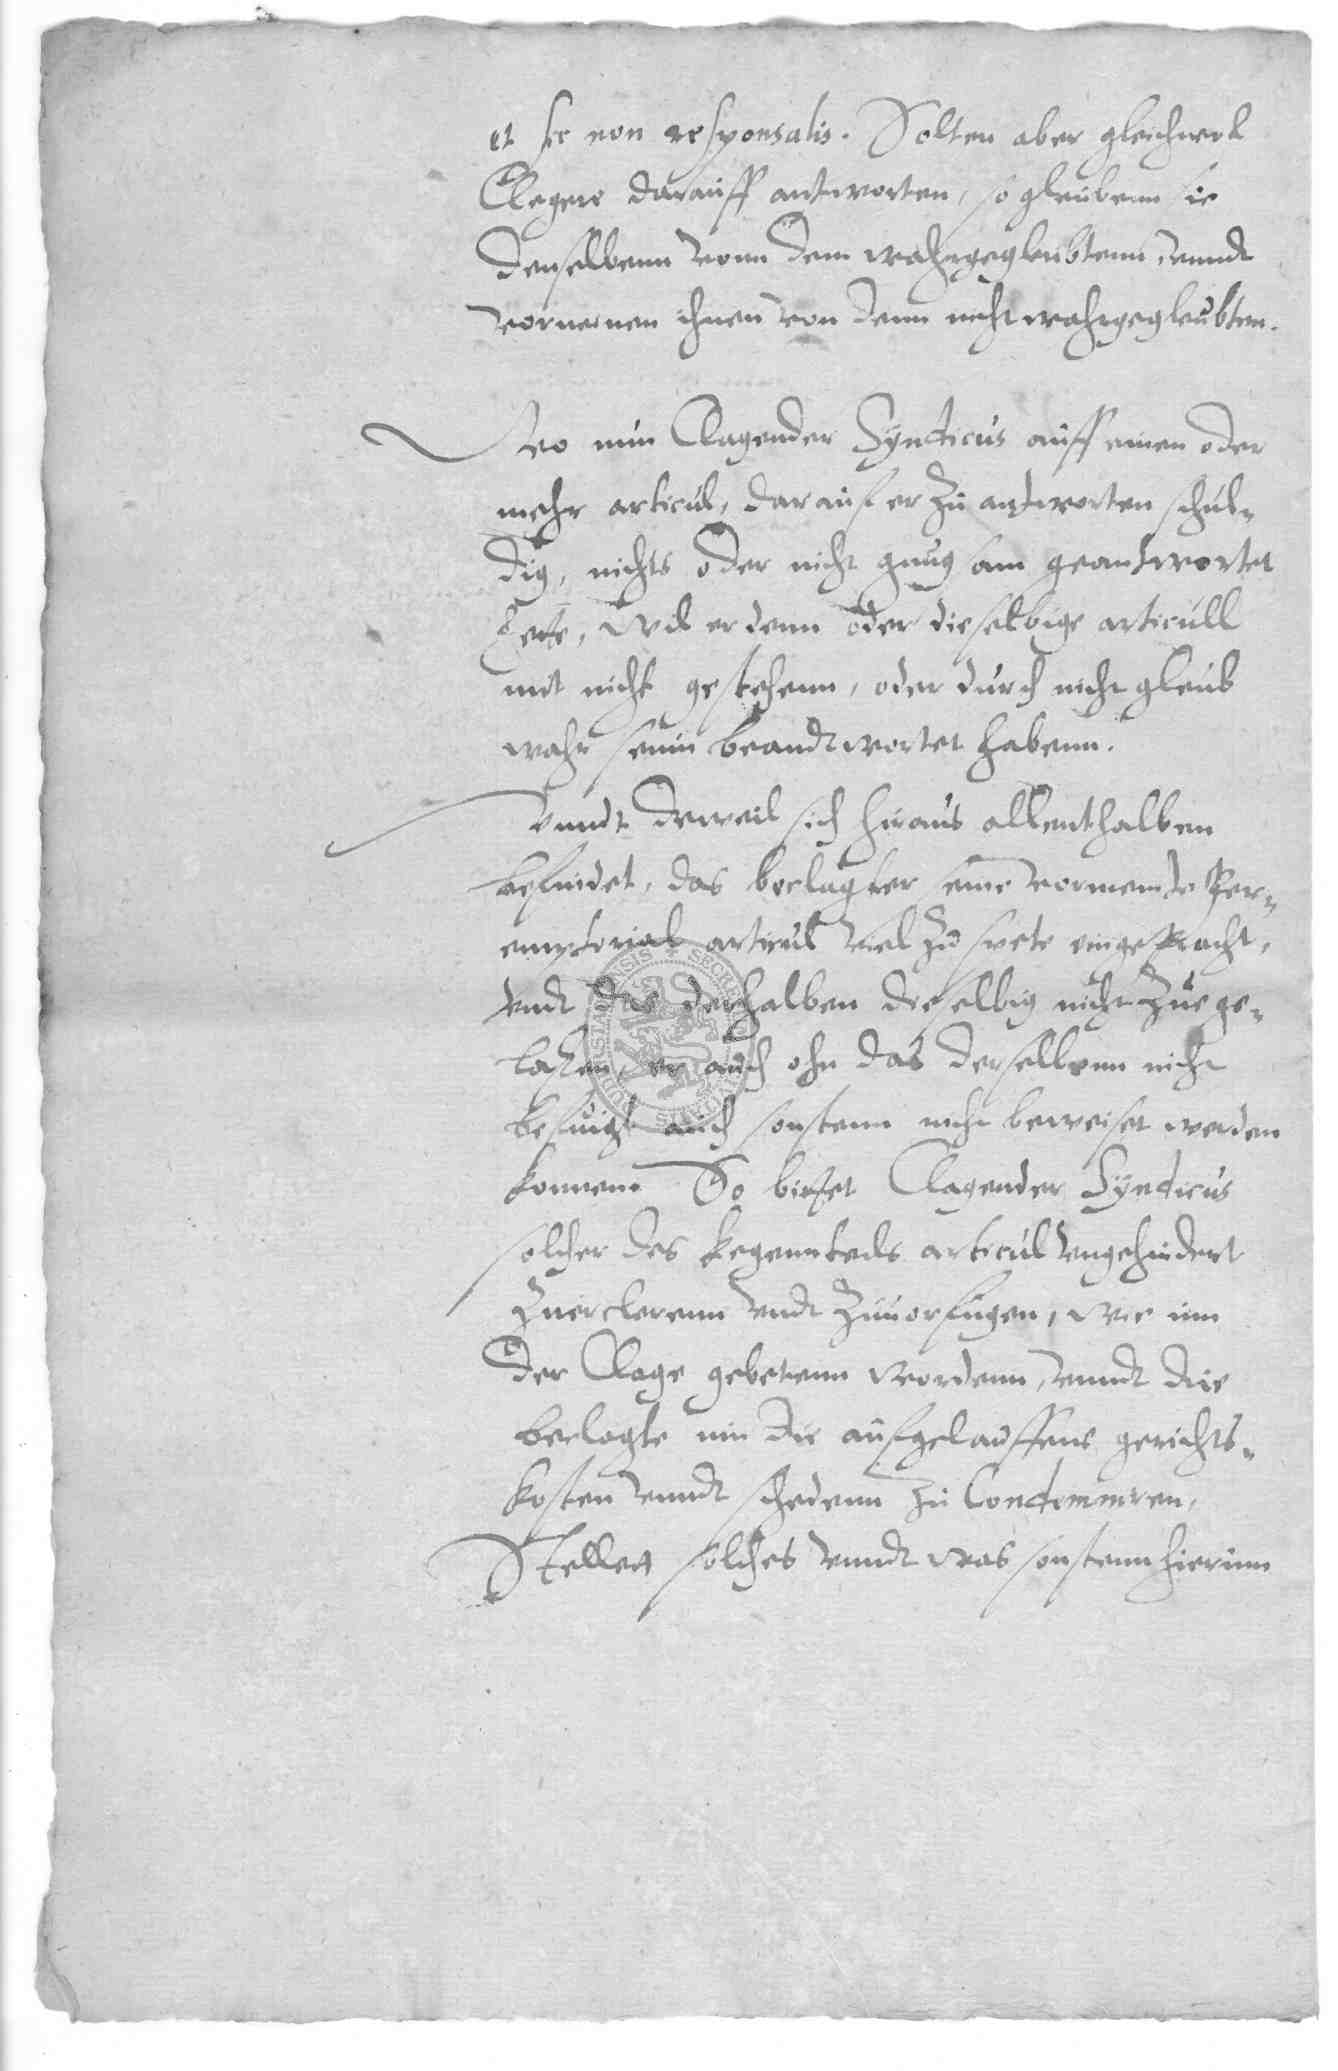 et sic non responsalis. Solten aber gleichwol
Clegere darauff antworten, so gleubenn sie
denselbenn vonn dem wahrgegleubtenn, vnndt
vorneinen ihnen von denn nicht wahrgegleubten.
Wo nun Clagender Synticus auff einen oder
mehr articul, darauf er zu antworten schul-
dig, nichts oder nicht gnugsam geantwortet
hette, wil er denn oder dieselbige articull
mit nicht gestehenn, oder durch nicht gleub
wahr seinn beandtwortet habenn.
Vnndt dieweil sich hiraus allenthalben
befindet, das beclagter seine vormeinte Per-
emptorial articul viel zu spete eingebracht,
vndt das derhalben dieselbig nicht zuege-
laßen, er auch ohn das derselbenn nicht
befuigt auch sonstenn nicht beweiset werden
konnen. So bittet Clagender Synticus
solcher des kegenteils articul vngehindert
zuercklerenn vndt zuuorfugen, wie inn
der Clage gebetenn wordenn, vnndt die
beclagte inn die aufgelauffene gerichts-
kosten vnndt schedenn zu Condemniren,
Stellet solches vnndt was sonstenn hierinn
SECRETUM